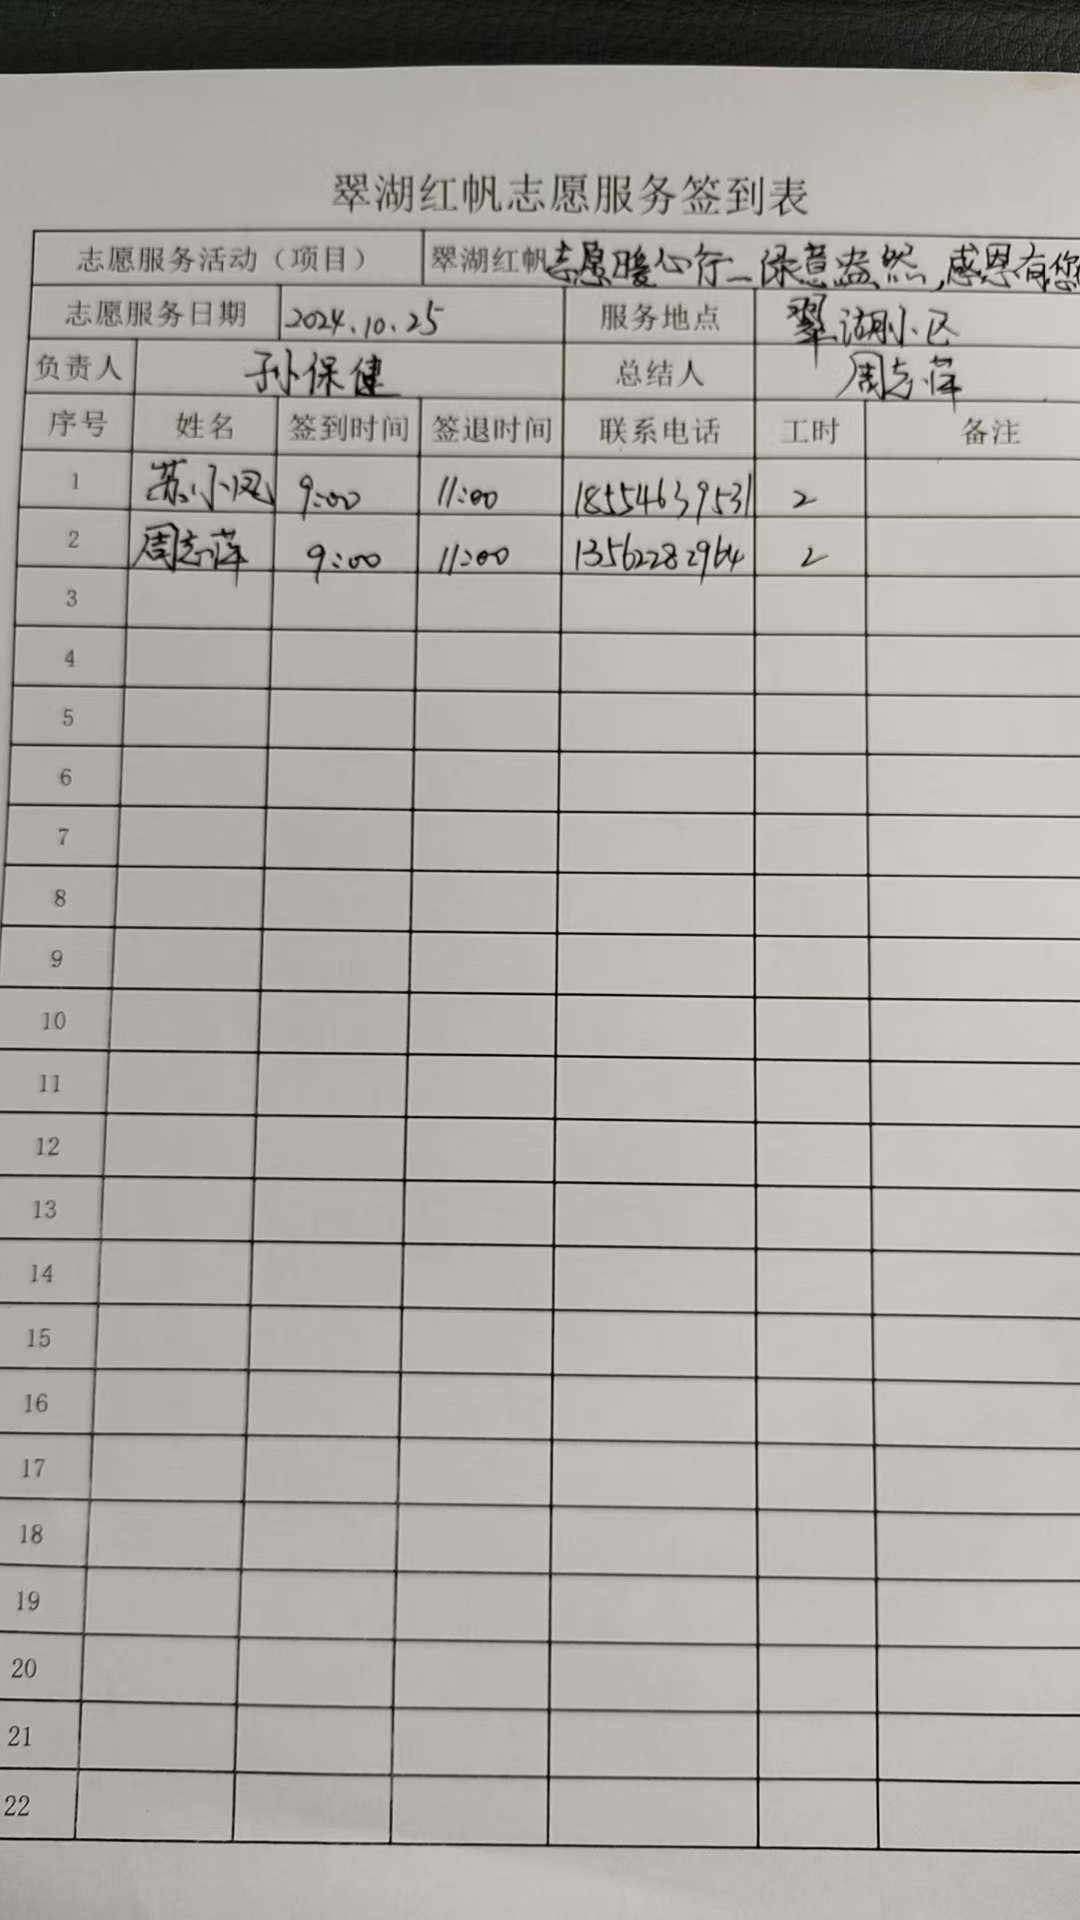 翠湖红帆志愿服务签到表
志愿服务活动（项目） 翠湖红帆志愿暖心行—绿意盎然,感恩有您
志愿服务日期 2024.10.25 服务地点 翠湖小区
负责人 孙保健 总结人 周志萍
序号 姓名 签到时间 签退时间 联系电话 工时 备注
1 苏小凤 9:00 11:00 18554639531 2
2 周志萍 9:00 11:00 13562282964 2
3
4
5
6
7
8
9
10
11
12
13
14
15
16
17
18
19
20
21
22